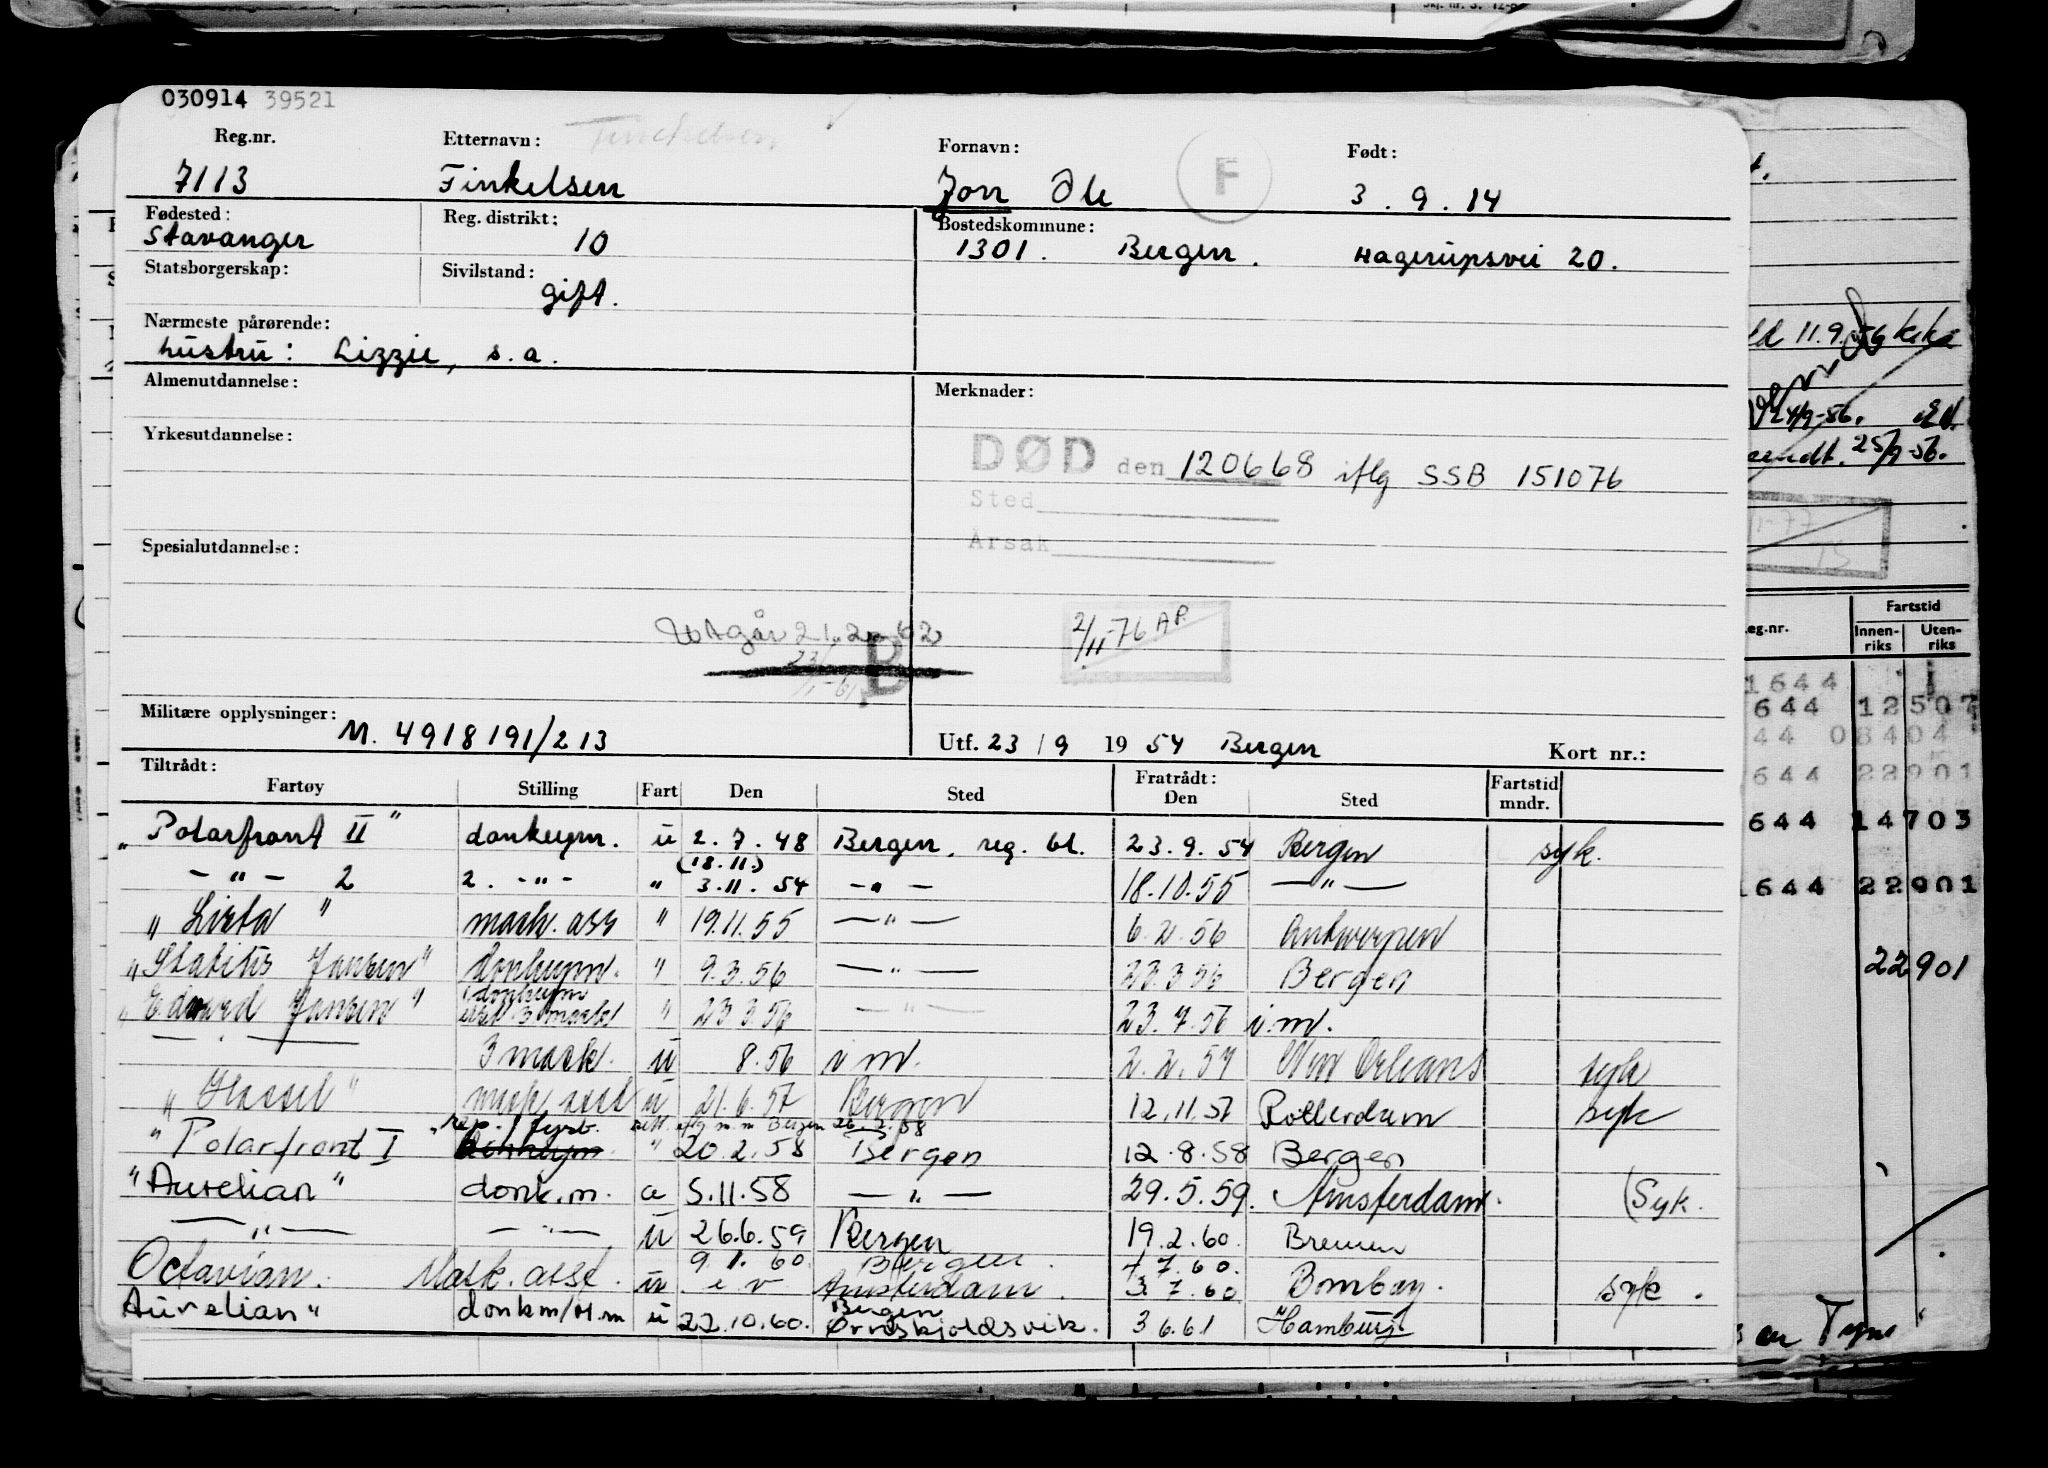 030914 39521
Reg.nr. Etternavn: Fornavn: F Født:
7113 Finkelsen Jon Ole 3.9.14
Fødested: Reg. distrikt: Bostedskommune:
Stavanger 10 1301. Bergen. Hagerupsvei 20.
Statsborgerskap: Sivilstand:
gift.
Nærmeste pårørende:
hustru: Lizzie, s.a.
Almenutdannelse: Merknader:
Yrkesutdannelse:
DØD den 120668 iflg SSB 151076
Sted
Årsak
Spesialutdannelse:
Utgår 21.2.62
2/11-76 AP.
B
Militære opplysninger:
M. 4918191/213
Utf. 23/9 1954 Bergen Kort nr.:
Tiltrådt: Fratrådt:
Fartøy Stilling Fart Den Sted Den Sted Fartstid mndr.
"Polarfront II" donkeym. u 2.7.48 Bergen, reg. bl. 23.9.54 Bergen syk.
(18.11.)
-"- 2 2. -"- " 3.11.54 -"- 18.10.55 -"-
"Lista" mask. ass " 19.11.55 -"- 6.2.56 Antwerpen
Jansen" donkeym. " 9.3.56 -"- 23.3.56 Bergen
donkeym
"Edward Jansen" 3 mask " 23 3 56 -"- 23.7.56 i.m.
-"- 3 mask. u 8.56 i m. 2.2.57 New Orleans syk
"Hassel" mask. asst u 21.6.57 Bergen 12.11.57 Rotterdam syk
rep. / fyrb. m.m Bergen
"Polarfront I donkeym " 20.2.58 Bergen 12.8.58 Bergen
"Aurelian" donk.m. a 5.11.58 -"- 29.5.59. Amsterdam. (Syk.
-"- -"- u 26.6.59 Bergen 19.2.60. Bremen
9.1.60 Bergen. 7.60.
Octavian. Mask. asst. u e v Amsterdam. 3.7.60 Bombay. syk.
Bergen
Aurelian" donkm/M.m u 22.10.60. Ørnskjoldsvik. 3 6.61 Hamburg
11.9.56
24/9-56.
sendt. 25/9-56.
Fartstid
eg.nr. Innen-riks Uten-riks
1644
644 12507
44 08404
644 22901
644 14703
1644 22901
22901